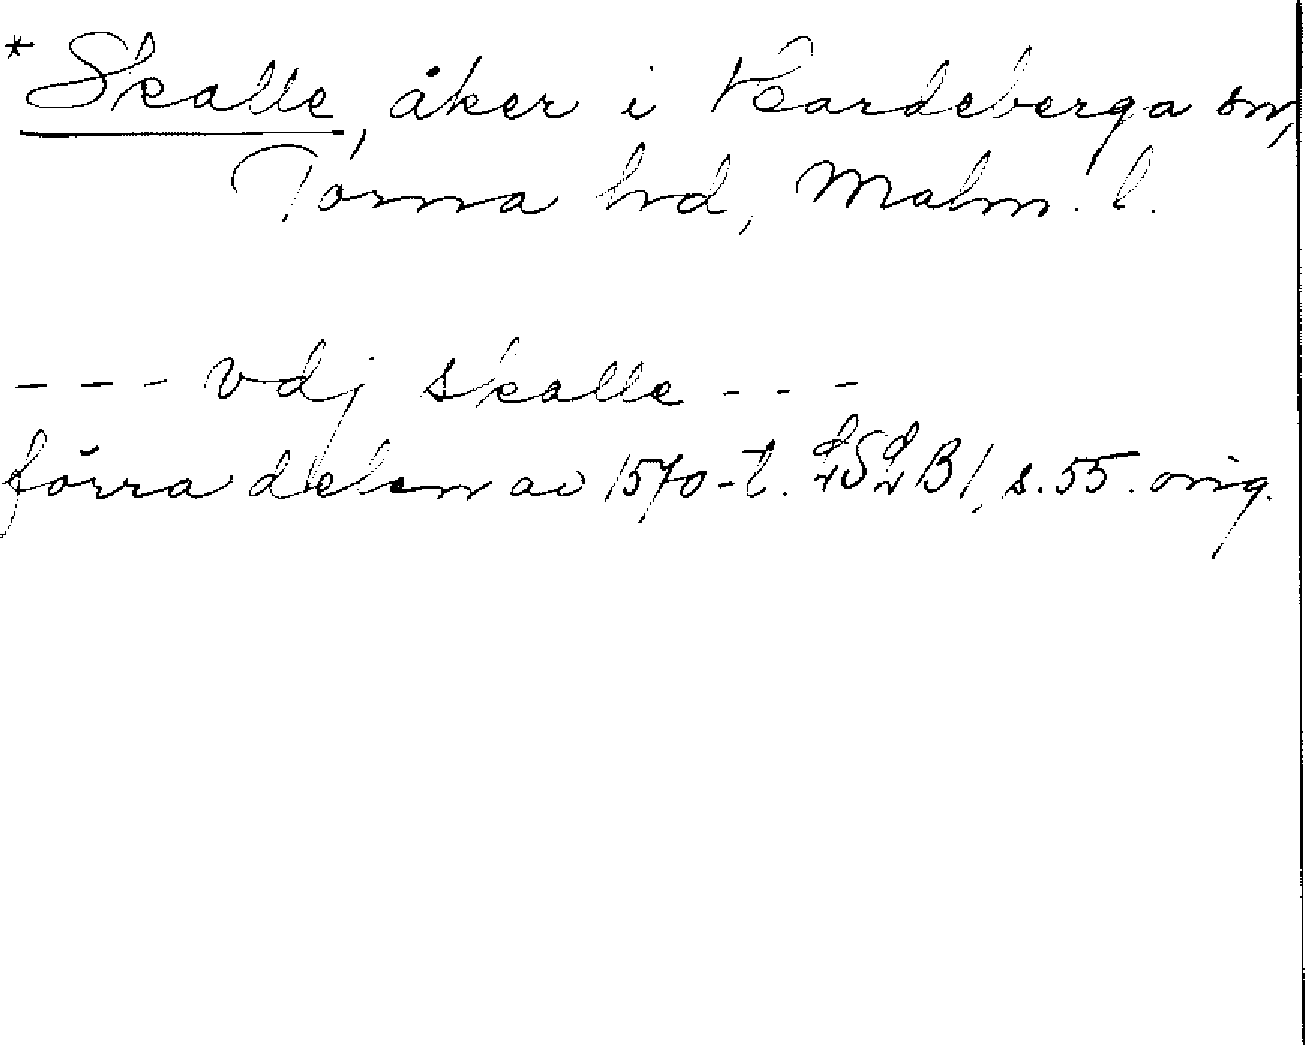 *Skalle, åker i Hardeberga sn,
Torna hd, Malm. l.
--- vdj skalle ---
förra delen av 1570-t. LSLB 1, s. 55. orig.